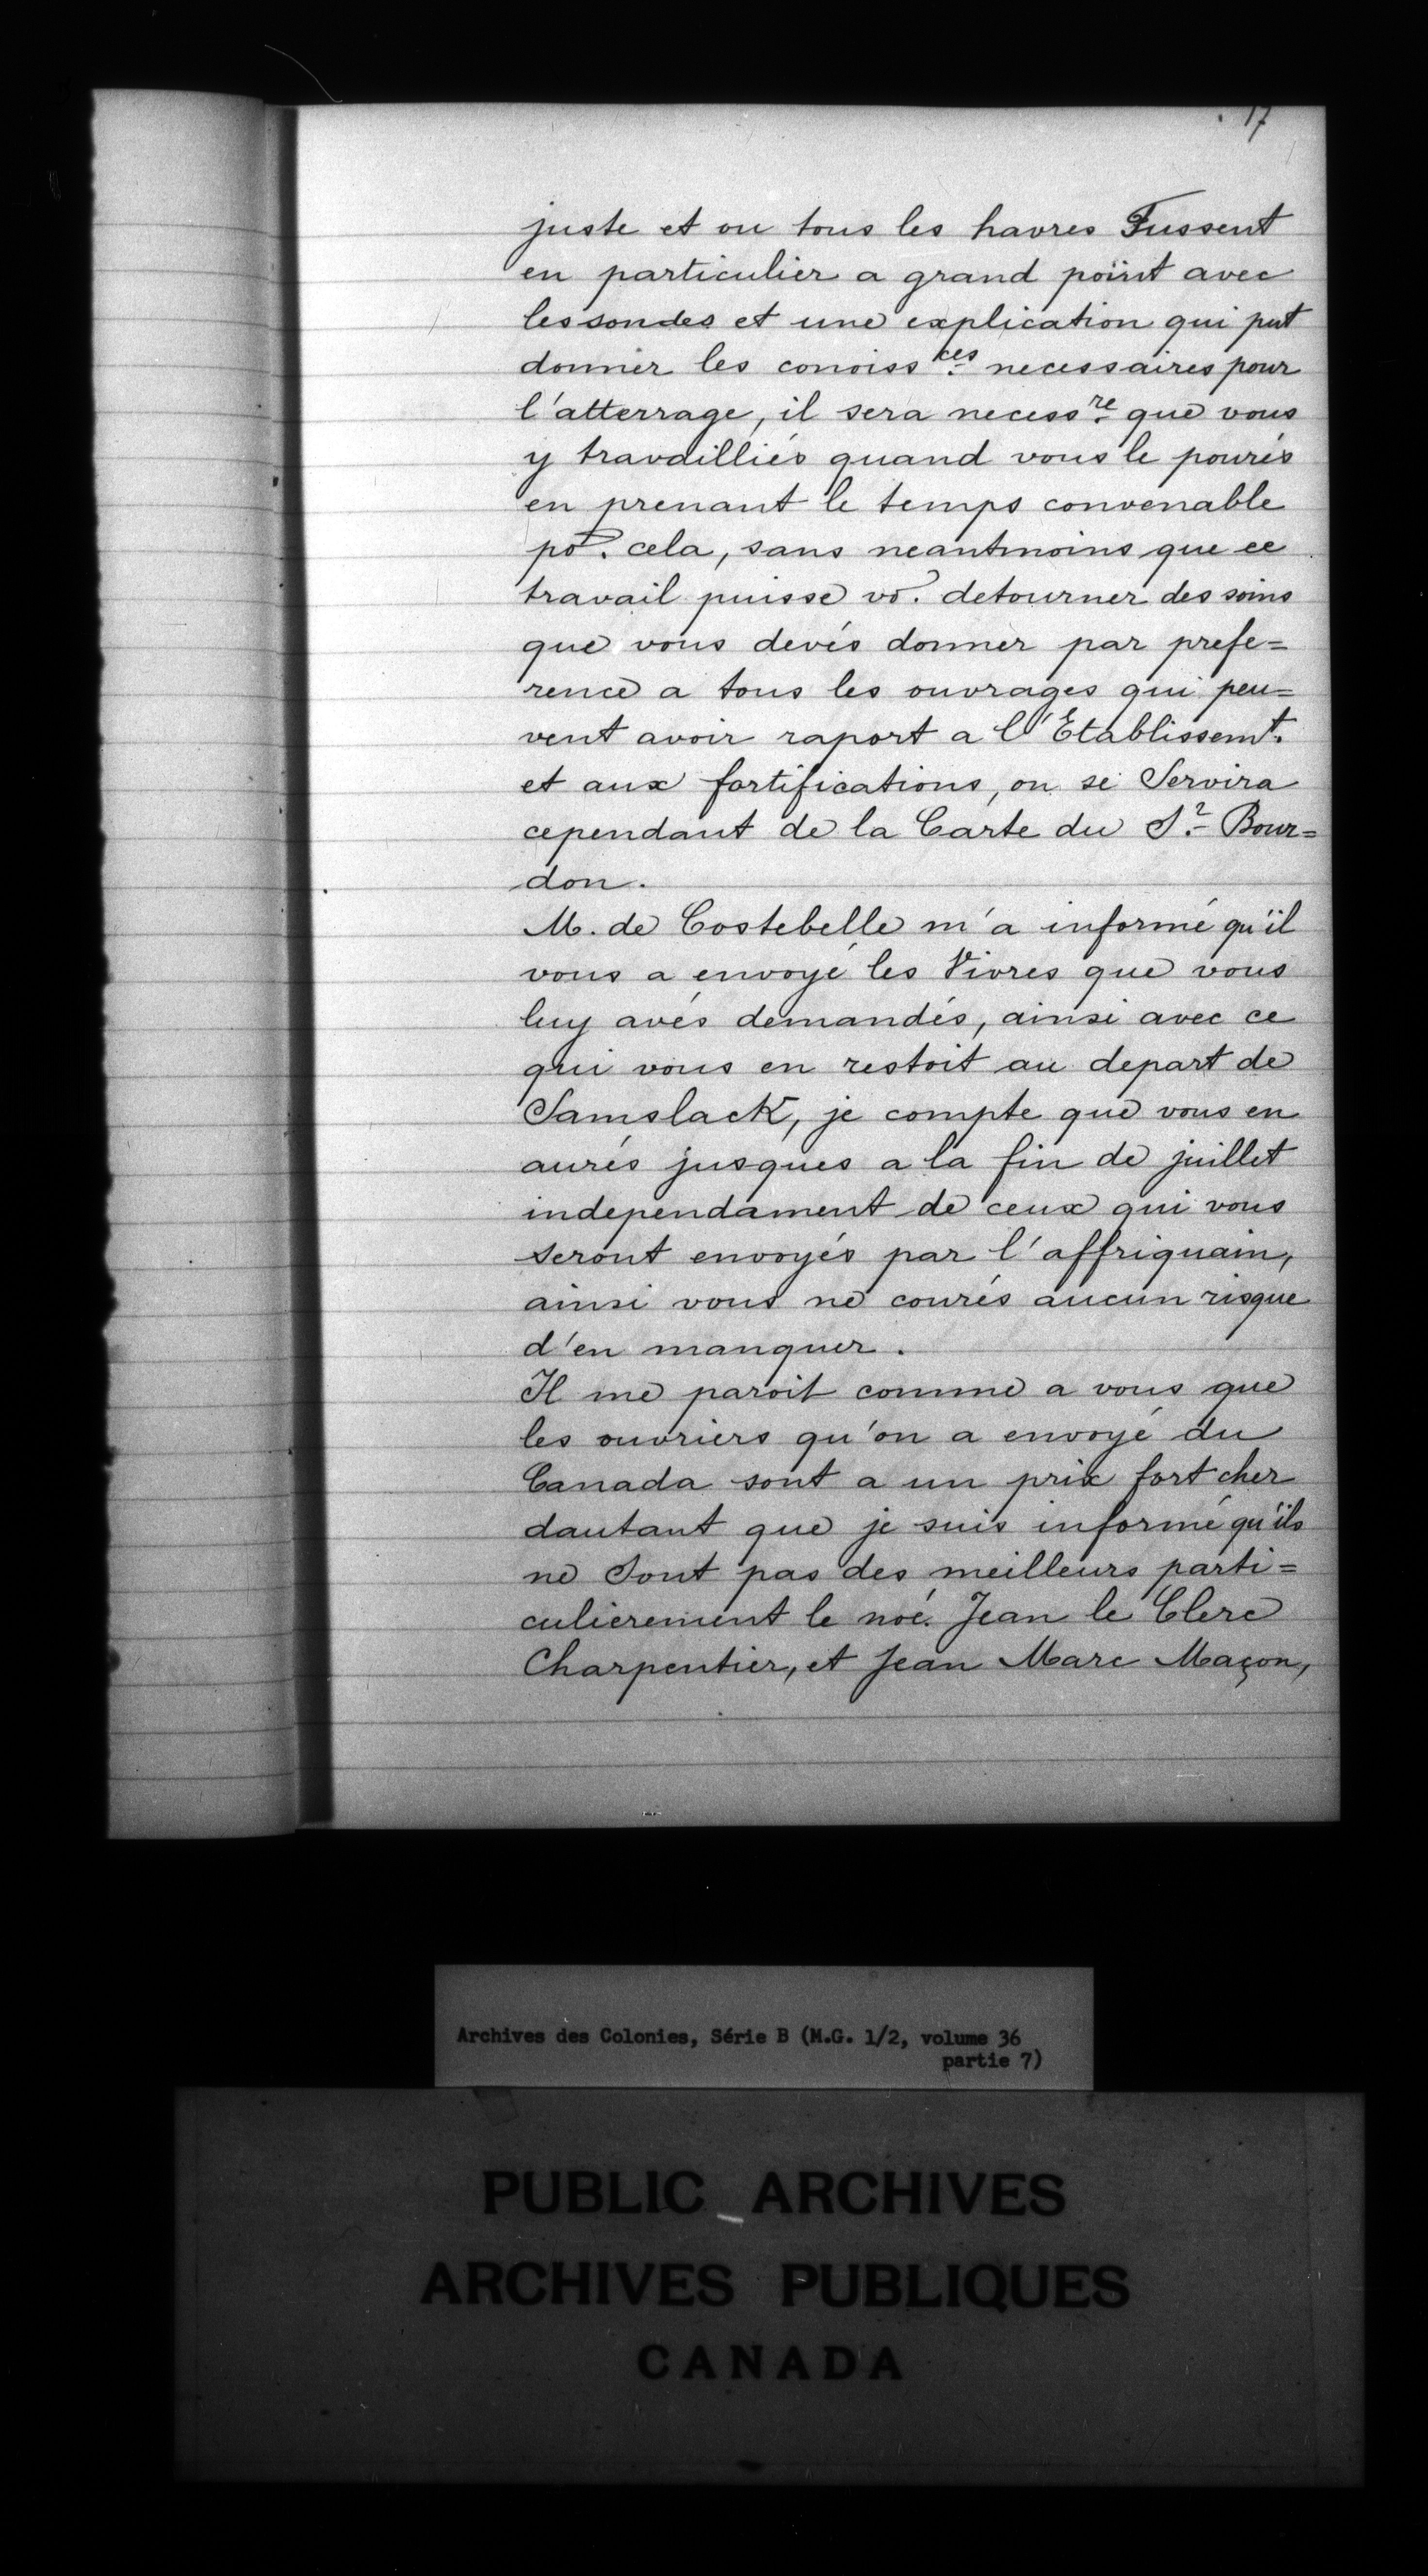 17
juste et ou tous les havres Fussent
en particulier a grand point avec
les sondes et une explication qui put
donner les conoiss.ces necessaires pour
l'atterrage, il sera necess.re que vous
y travailliés quand vous le pourés
en prenant le temps convenable
po.r cela, sans neantmoins que ce
travail puisse vo. detourner des soins
que vous devés donner par prefe=
rence a tous les ouvrages qui peu=
vent avoir raport a l'Etablissemt.
et aux fortifications, on se Servira
cependant de la Carte du S.r Bour=
don.
M. de Costebelle m'a informé qu'il
vous a envoyé les Vivres que vous
luy avés demandés, ainsi avec ce
qui vous en restoit au depart de
Samslack, je compte que vous en
aurés jusques a la fin de juillet
independament de ceux qui vous
seront envoyés par l'affriquain,
ainsi vous ne courés aucun risque
d'en manquer.
Il me paroit comme a vous que
les ouvriers qu'on a envoyé du
Canada sont a un prix fort cher
dautant que je suis informé qu'ils
ne Sont pas des meilleurs parti=
culierement le noé. Jean le Clerc
Charpentier, et Jean Marc Maçon,
Archives des Colonies, Série B (M.G. 1/2, volume 36
partie 7)
PUBLIC ARCHIVES
ARCHIVES PUBLIQUES
CANADA